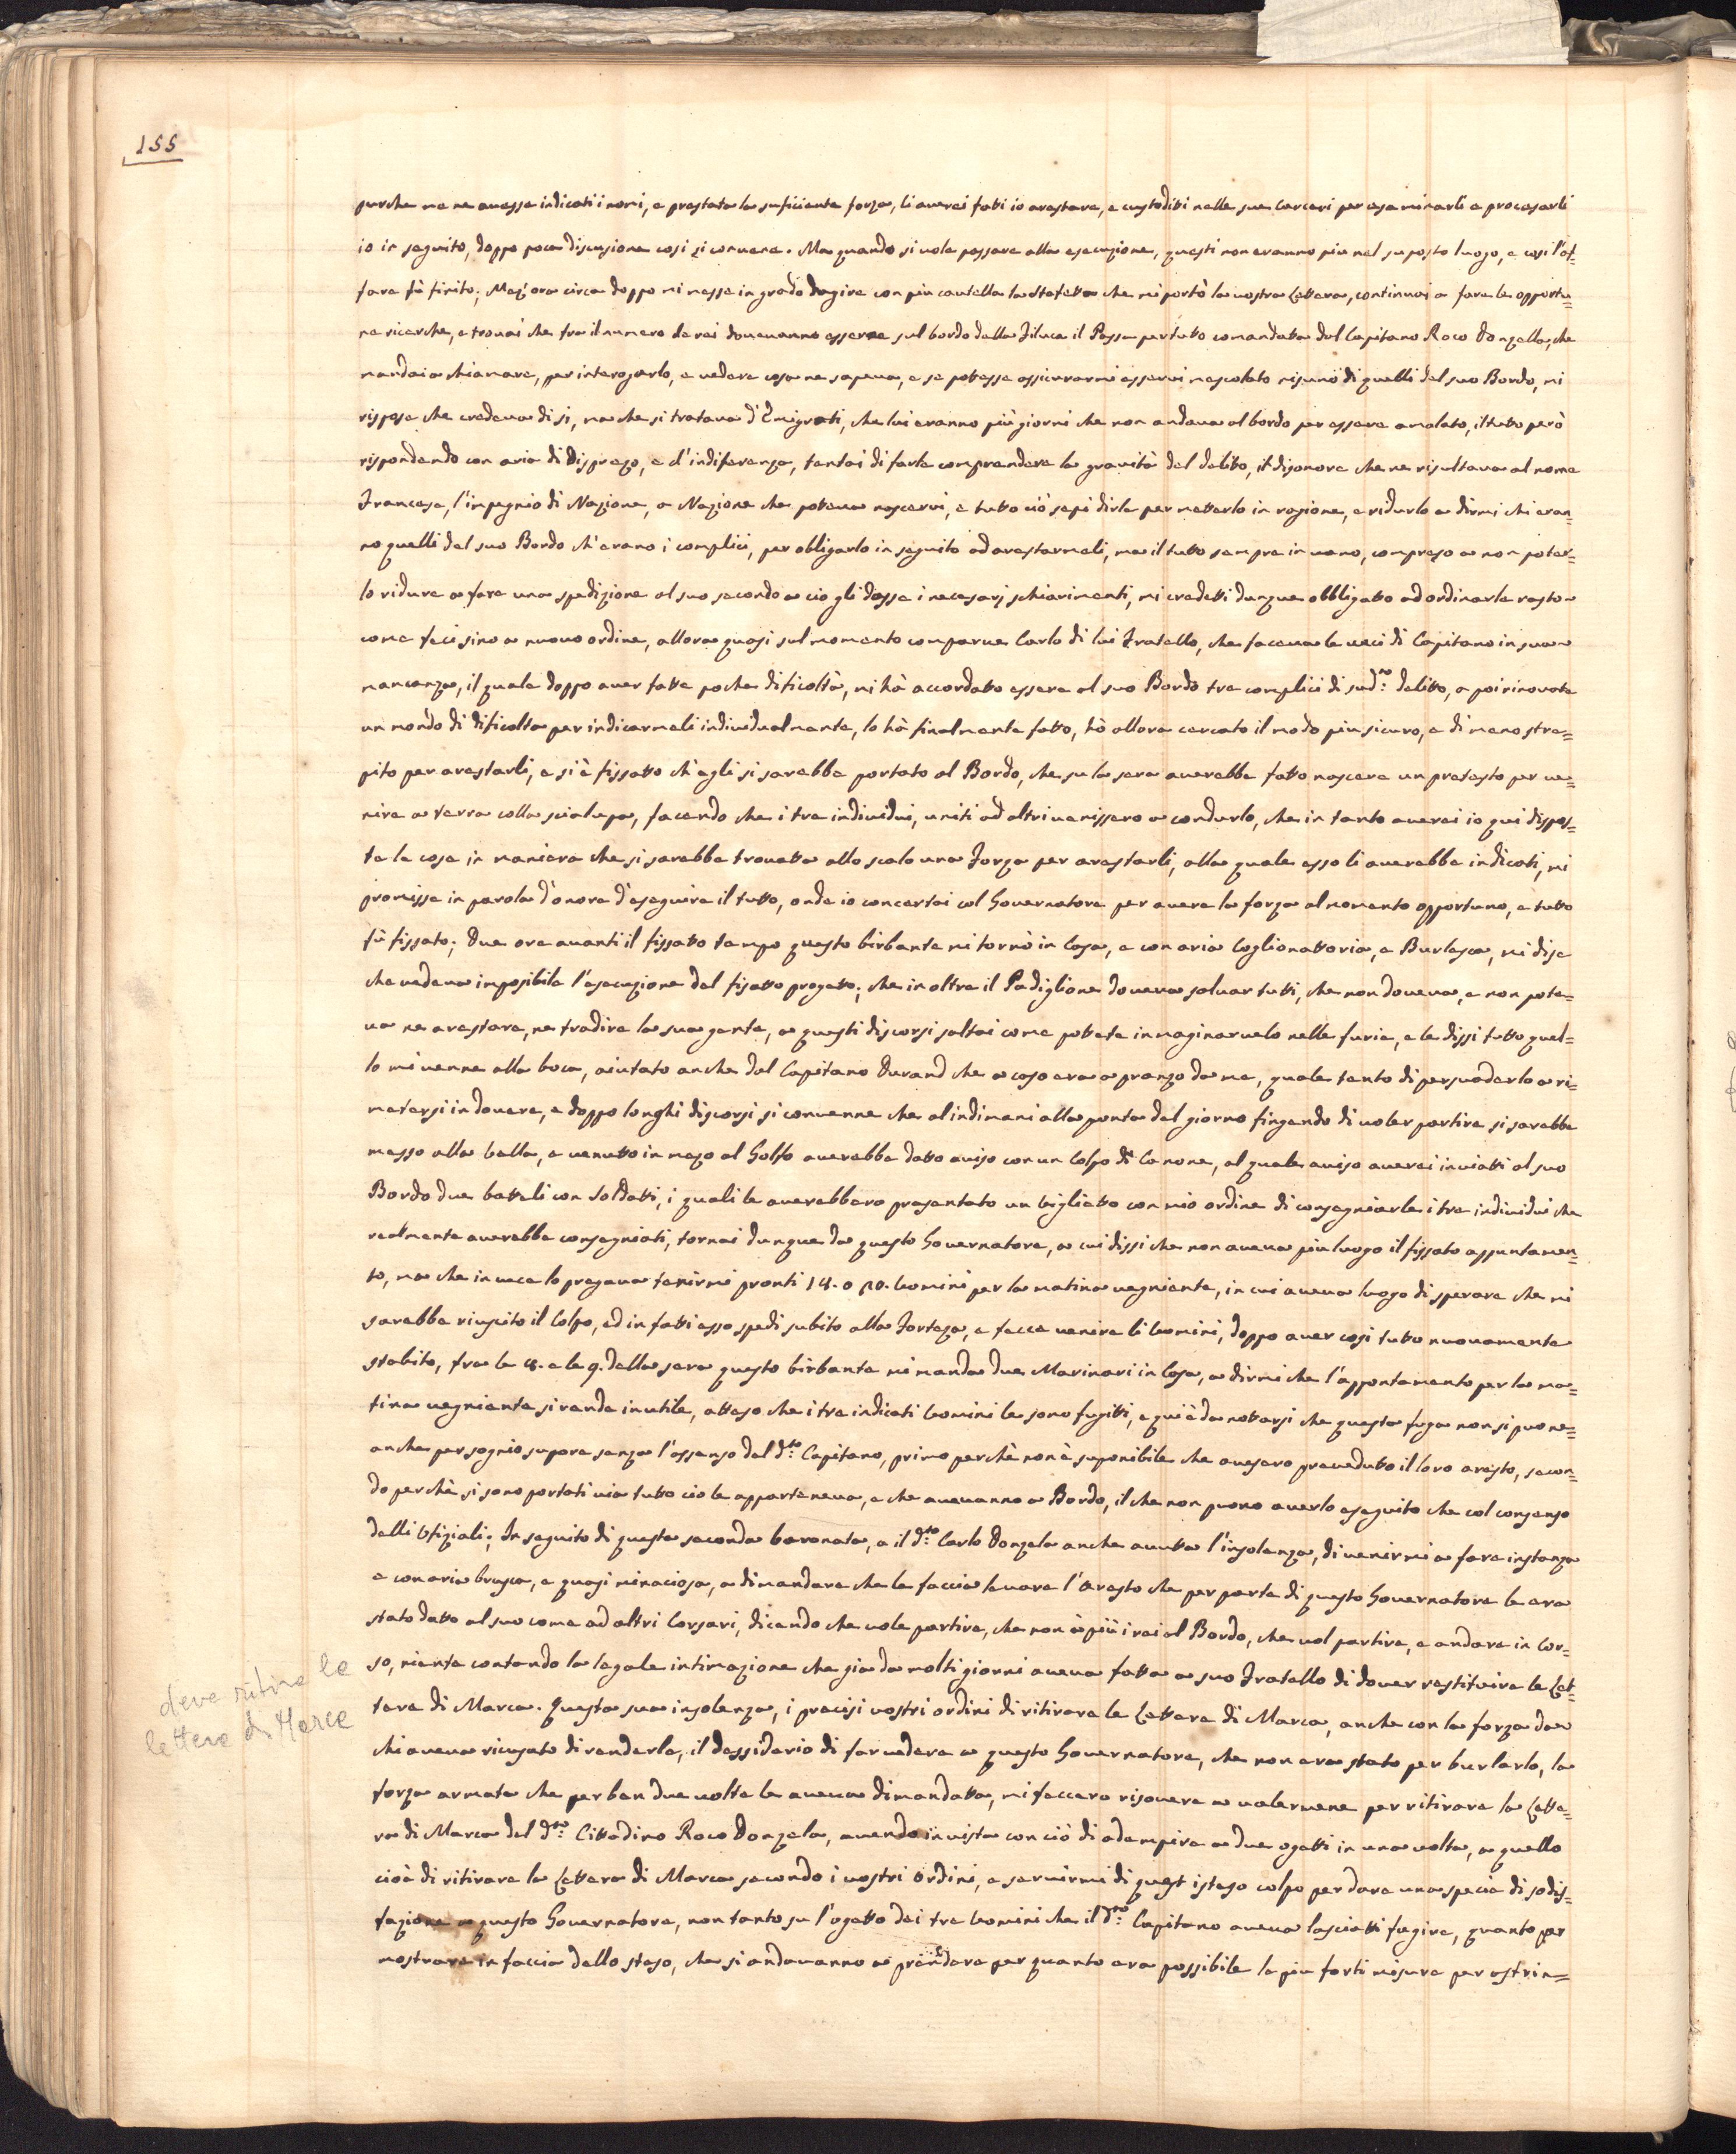 155
purche me ne avesse indicati i nomi, e prestata la suficiente forza, li averei fatti io arestare, e custoditi nelle sue Carceri per esaminarli e procesarli
io in seguito, doppo poca discusione così si convene. Ma quando si vole passare alla esecuzione, questi non eranno più nel suposto luogo, e così l'af=
fare fù finito; Mez'ora circa doppo mi messe in grado d'agire con più cautella la stafetta che mi portò la vostra Lettera, continuai a fare le opportu=
ne ricerche, e trovai che fra il numero de rei dovevanno esserne sul bordo della Filuca il Passa per tutto comandata dal Capitano Roco Donzella, che
mandai a chiamare, per interogarlo, e vedere cosa ne sapeva, e se potesse assicurarmi esservi mescolato nisuno di quelli del suo Bordo, mi
rispose che credeva di si, ma che si tratava d'Emigrati, che lui eranno più giorni che non andava al bordo per essere amalato, il tutto però
rispondendo con aria di disprezo, e d'indiferenza, tentai di farle comprendere la gravità del delitto, il disonore che ne risultava al nome
Francese, l'impegnio di Nazione, a Nazione che poteva nascervi, e tutto ciò sepi dirle per metterlo in ragione, e ridurlo a dirmi chi eran=
no quelli del suo Bordo ch'erano i complici, per obligarlo in seguito ad arestarmeli, ma il tutto sempre in vano, compreso a non poter=
lo ridure a fare una spedizione al suo secondo a cio gli dasse i necesarj schiarimenti, mi credetti dunque obbligatto ad ordinarle l'aresto
come feci sino a nuovo ordine, allora quasi sul momento comparve Carlo di lui Fratello, che faceva le veci di Capitano in sua
mancanza, il quale doppo aver fatte poche dificoltà, mi hà accordatto essere al suo Bordo tre complici di sud.to delitto, e poi rinovate
un mondo di dificolta per indicarmeli individualmente, lo hà finalmente fatto, hò allora cercato il modo più sicuro, e di meno stre=
pito per arestarli, e si è fissatto ch'egli si sarebbe portato al Bordo, che su la sera averebbe fatto nascere un pretesto per ve=
nire a terra colla scialupa, facendo che i tre individui, uniti ad altri venissero a condurlo, che in tanto averei io qui dispos=
te le cose in maniera che si sarebbe trovatta allo scalo una Forza per arestarli, alla quale esso li averebbe indicati, mi
promisse in parola d'onore d'eseguire il tutto, onde io concertai col Governatore per avere la forza al momento opportuno, e tutto
fù fissato; Due ore avanti il fissatto tempo questo birbante mi tornò in Casa, e con aria Coglionattoria, e Burlesca, mi dise
che vedeva imposibile l'esecuzione del fisatto progetto; che in oltre il Padiglione doveva salvar tutti, che non doveva, e non pote=
va ne arestare, ne tradire la sua gente, a questi discorsi saltai come potete immaginarvelo nelle furie, e le dissi tutto quel=
lo mi venne alla boca, aiutato anche dal Capitano Durand che a caso era a pranzo da me, quale tento di persuaderlo a ri=
metersi in dovere, e doppo longhi discorsi si convenne che al indimani alla ponta del giorno fingendo di voler partire si sarebbe
messo alla balla, e venutto in mezo al Golfo averebbe datto aviso con un Colpo di Canone, al quale aviso averei inviatti al suo
Bordo due batteli con Soldatti, i quali le averebbero presentato un bigliatto con mio ordine di consegniarle i tre individui che
realmente averebbe consegniati, tornai dunque da questo Governatore, a cui dissi che non aveva più luogo il fissato appuntamen=
to, ma che in vece lo pregava tenirmi pronti 18. o 20. Uomini per la matina vegniente, in cui aveva luogo di sperare che mi
sarebbe riuscito il Colpo, ed in fatti esso spedi subito alla Forteza, e fecce venire li Uomini, doppo aver così tutto nuovamente
stabito, fra le 8. e le 9. della sera questo birbante mi manda due Marinari in Casa, a dirmi che l'appontamento per la ma=
tina vegniente si rende inutile, atteso che i tre indicati Uomini le sono fugitti, e qui è da nottarsi che questa fuga non si puo ne=
anche per sognio supore senza l'assenso del d.to Capitano, primo perchè non è suponibile che avesero preveduto il loro aresto, secon=
do perchè si sono portati via tutto cio le apparteneva, e che avevanno a Bordo, il che non pono averlo eseguito che col consenso
delli Ufiziali; In seguito di questa seconda baronata, a il d.to Carlo Donzela anche avutta l'insolenza, di venirmi a fare instanza
e con aria brusca, e quasi minaciosa, a dimandare che le faccia levare l'aresto che per parte di questo Governatore le era
stato datto al suo come ad altri Corsari, dicendo che vole partire, che non à più i rei al Bordo, che vol partire, e andare in Cor=
so, niente contando la legale intimazione che gia da molti giorni aveva fatta a suo Fratello di dover restituire le Let=
tere di Marca. Questa sua insolenza, i precisi vostri ordini di ritirare le Lettere di Marca, anche con la forza da
chi aveva ricusato di renderle, il dessiderio di far vedere a questo Governatore, che non era stato per burlarlo, la
forza armata che per ben due volte le aveva dimandatta, mi feccero risovere a valermene per ritirare la Lette=
ra di Marca del d.to Cittadino Roco Donzela, avendo in vista con ciò di adempire a due ogetti in una volta, a quello
cioè di ritirare la Lettera di Marca secondo i vostri ordini, e servirmi di quest'isteso colpo per dare una specia di sodis=
fazione a questo Governatore, non tanto su l'ogetto dei tre Uomini che il d.to Capitano aveva lasciatti fugire, quanto per
mostrare in faccia dello steso, che si andavanno a prendere per quanto era possibile le piu forti misure per ostrin=
deve ritirare le
lettere di Marce